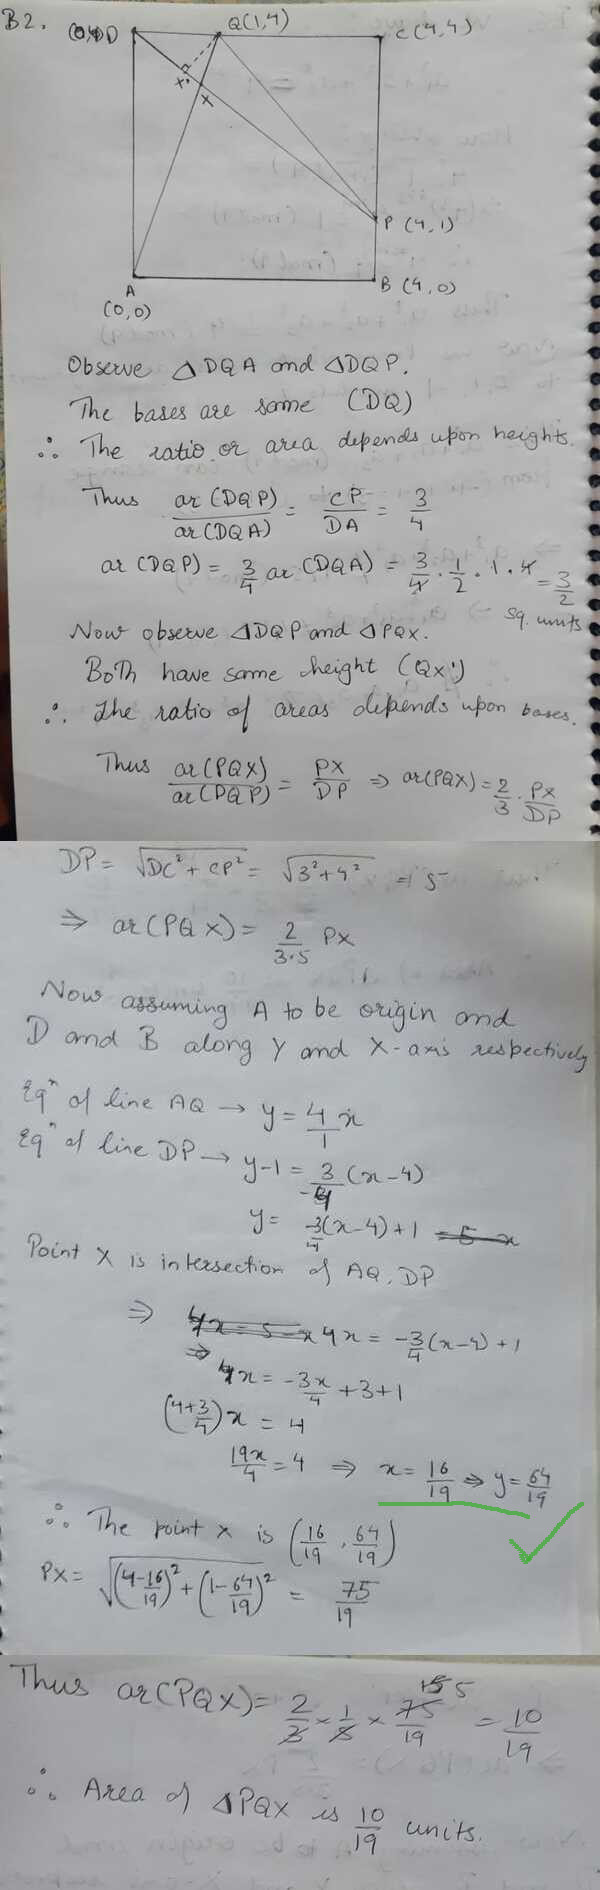 B2.
(0,4)D
Q(1,4)
C(4,4)
X'
X
P (4,1)
A
(0,0)
B (4,0)
Observe △DQA and △DQP.
The bases are same (DQ)
∴ The ratio or area depends upon heights.
Thus ar(DQP)/ar(DQA) = CP/DA = 3/4
ar(DQP) = 3/4 ar(DQA) = 3/4 · 1/2 · 1 · 4 = 3/2
sq. units
Now observe △DQP and △PQX.
Both have same height (QX')
∴ The ratio of areas depends upon bases.
Thus ar(PQX)/ar(PDQP) = PX/DP ⇒ ar(PQX) = 2/3 · PX/DP
DP = √DC² + CP² = √3² + 4² = 5
⇒ ar(PQX) = 2/3·5 PX
Now assuming A to be origin and
D and B along Y and X-axis respectively
Eqⁿ of line AQ → y = 4/1 x
Eqⁿ of line DP → y-1 = 3/-4 (x-4)
y = -3/4 (x-4) + 1 = 5-x
Point X is intersection of AQ, DP
⇒ 4x = 5-x 4x = -3/4 (x-4) + 1
⇒ 4x = -3x/4 + 3 + 1
(4+3/4) x = 4
19x/4 = 4 ⇒ x = 16/19 ⇒ y = 64/19
∴ The point X is (16/19, 64/19)
PX = √(4-16/19)² + (1-64/19)² = 75/19
Thus ar(PQX) = 2/3 × 1/5 × 75/19 15 5 = 10/19
∴ Area of △PQX is 10/19 units.